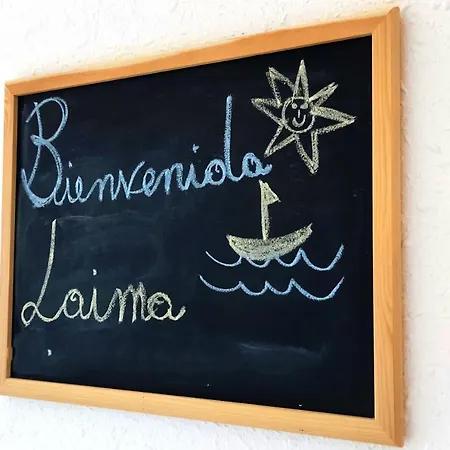 Bienvenida
Laima